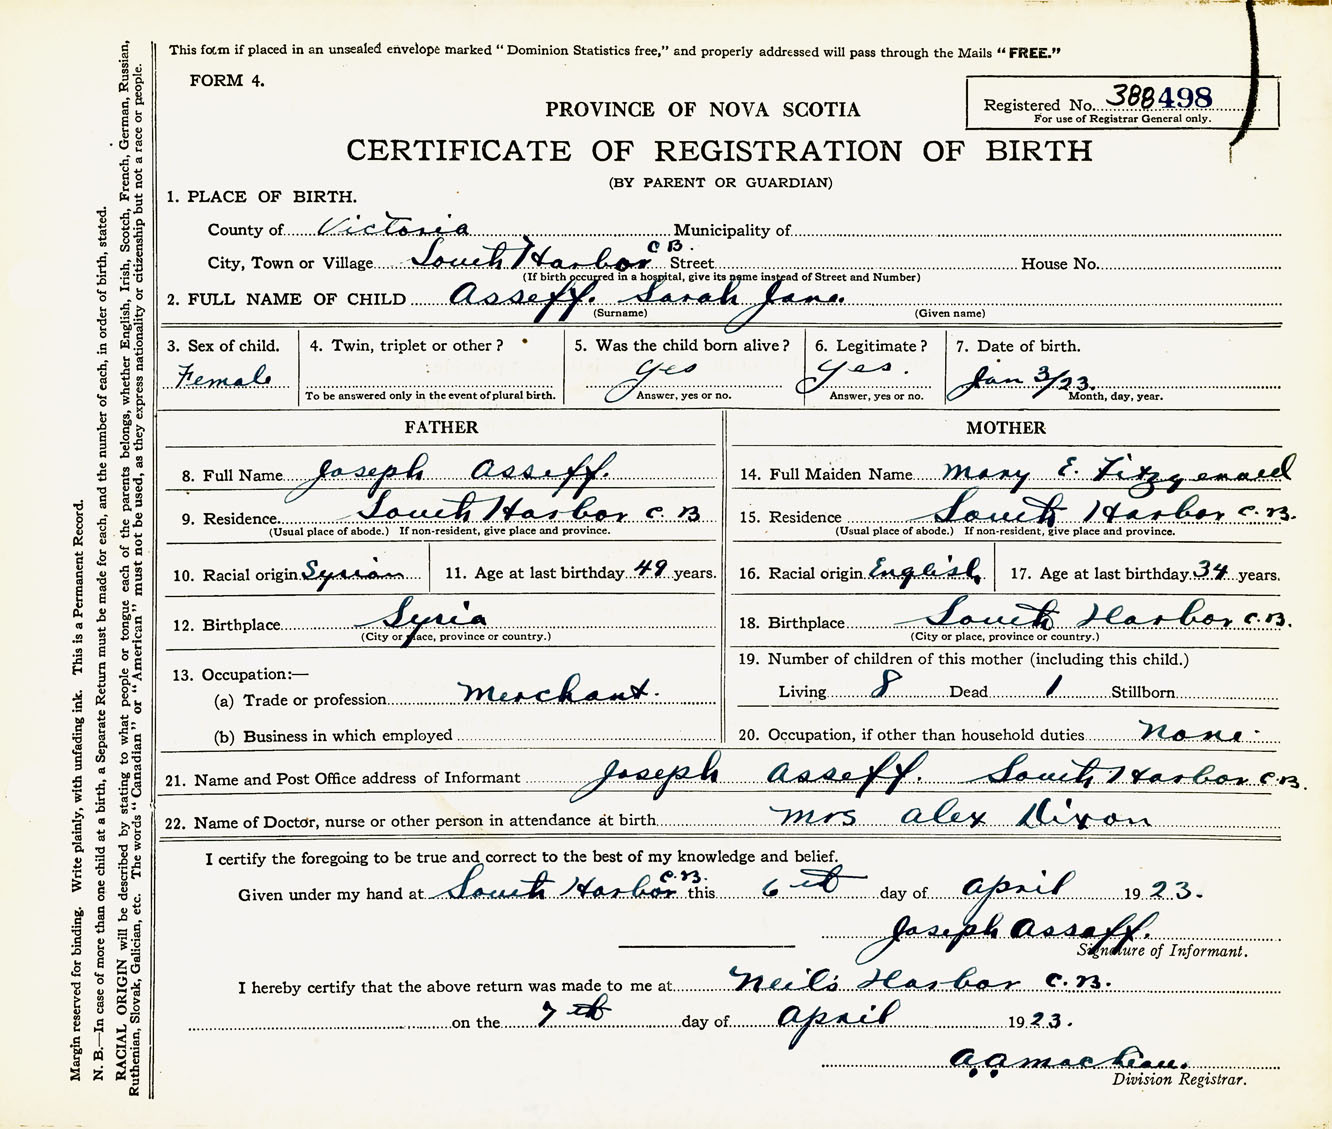 This form if placed in an unsealed envelope marked "Dominion Statistics free," and properly addressed will pass through the Mails "FREE."
FORM 4.
PROVINCE OF NOVA SCOTIA
Registered No. 388498
For use of Registrar General only.
CERTIFICATE OF REGISTRATION OF BIRTH
(BY PARENT OR GUARDIAN)
1. PLACE OF BIRTH.
County of Victoria Municipality of
City, Town or Village South Harbor C.B. Street House No.
(If birth occurred in a hospital, give its name instead of Street and Number)
2. FULL NAME OF CHILD Asseff. Sarah Jane.
(Surname) (Given name)
3. Sex of child. 4. Twin, triplet or other? 5. Was the child born alive? 6. Legitimate? 7. Date of birth.
Female Yes Yes. Jan 3/23.
To be answered only in the event of plural birth. Answer, yes or no. Answer, yes or no. Month, day, year.
FATHER MOTHER
8. Full Name Joseph Asseff. 14. Full Maiden Name Mary E. Fitzgerald
9. Residence South Harbor C.B 15. Residence South Harbor C.B.
(Usual place of abode.) If non-resident, give place and province. (Usual place of abode.) If non-resident, give place and province.
10. Racial origin Syrian 11. Age at last birthday 49 years. 16. Racial origin English 17. Age at last birthday 34 years.
12. Birthplace Syria 18. Birthplace South Harbor C.B.
(City or place, province or country.) (City or place, province or country.)
13. Occupation:— 19. Number of children of this mother (including this child.)
(a) Trade or profession Merchant. Living 8 Dead 1 Stillborn
(b) Business in which employed 20. Occupation, if other than household duties None.
21. Name and Post Office address of Informant Joseph Asseff. South Harbor C.B.
22. Name of Doctor, nurse or other person in attendance at birth Mrs Alex Dixon
I certify the foregoing to be true and correct to the best of my knowledge and belief.
Given under my hand at South Harbor C.B. this 6th day of April 1923.
Joseph Assaff.
Signature of Informant.
I hereby certify that the above return was made to me at Neil's Harbor C.B.
on the 7th day of April 1923.
A.A. MacLean.
Division Registrar.
Margin reserved for binding. Write plainly, with unfading ink. This is a Permanent Record.
N. B.—In case of more than one child at a birth, a Separate Return must be made for each, and the number of each, in order of birth, stated.
RACIAL ORIGIN will be described by stating to what people or tongue each of the parents belongs, whether English, Irish, Scotch, French, German, Russian,
Ruthenian, Slovak, Galician, etc. The words "Canadian" or "American" must not be used, as they express nationality or citizenship but not a race or people.